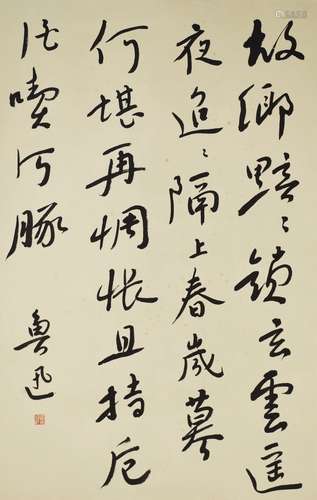 故鄉黯〻鎖玄雲遙
夜迢〻隔上春歲暮
何堪再惆悵且持卮
酒喫河豚
魯迅